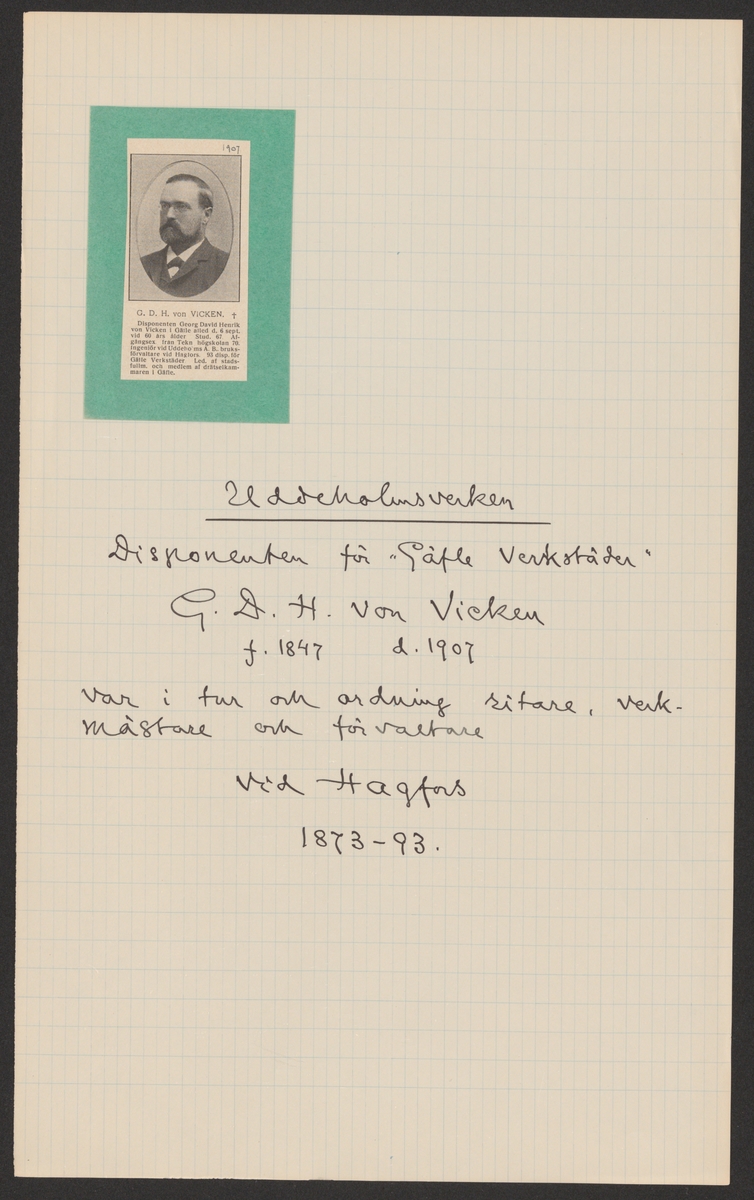 1907.
G. D. H. von VICKEN. †
Disponenten Georg David Henrik
von Vicken i Gäfle afled d. 6 sept.
vid 60 års ålder Stud. 67. Af-
gångsex. från Tekn högskolan 70,
ingeniör vid Uddeholms A. B. bruks-
förvaltare vid Hagfors. 93 disp. för
Gäfle Verkstäder Led. af stads-
fullm. och medlem af drätselkam-
maren i Gäfle.
Uddeholmsverken
Disponenten för "Gäfle Verkstäder"
G. D. H. von Vicken
f. 1847 d. 1907
var i tur och ordning ritare, verk-
mästare och förvaltare
vid Hagfors
1873-93.